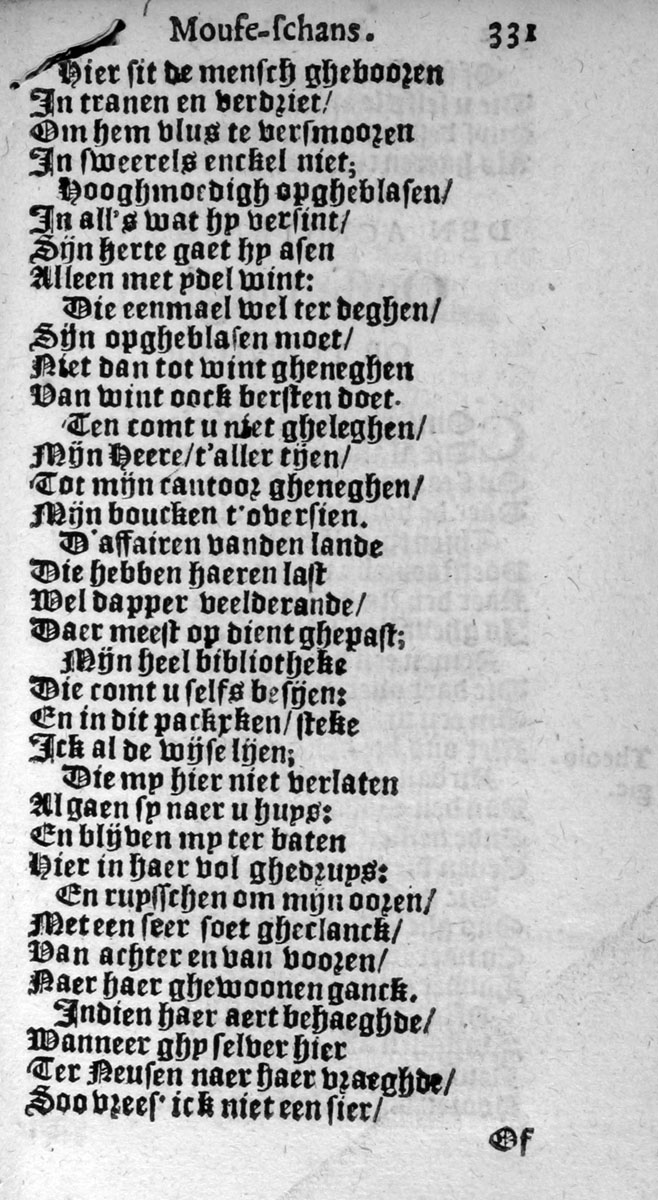 Mouse-schans. 331
Hier sit de mensch ghebooren
In tranen en verdriet/
Om hem vlus te versmooren
In sweerels enckel niet;
Hooghmoedigh opgheblasen/
In all's wat hy versint/
Sijn herte gaet hy asen
Alleen met ydel wint:
Die eenmael wel ter deghen/
Sijn opgheblasen moet/
Niet dan tot wint gheneghen
Van wint oock bersten doet.
Ten comt u niet gheleghen/
Mijn Heere/t'aller tijen/
Tot mijn cantoor gheneghen/
Mijn boucken t'oversien.
D'affairen vanden lande
Die hebben haeren last
Wel dapper veelderande/
Daer meest op dient ghepast;
Mijn heel bibliotheke
Die comt u selfs besijen:
En in dit packxken/steke
Ick al de wijse lijen;
Die my hier niet verlaten
Al gaen sy naer u huys:
En blijven my ter baten
Hier in haer vol ghedruys:
En ruysschen om mijn ooren/
Met een seer soet gheclanck/
Van achter en van vooren/
Naer haer ghewoonen ganck.
Indien haer aert behaeghde/
Wanneer ghy selver hier
Ter Neusen naer haer vraeghde/
Soo vrees' ick niet een sier/
Of